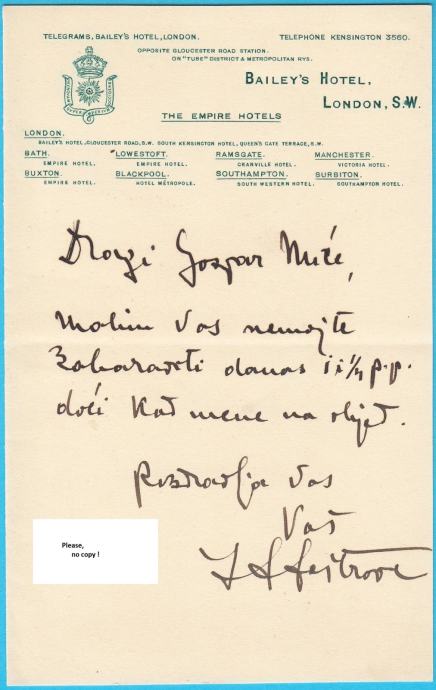 TELEGRAMS, BAILEY'S HOTEL, LONDON. TELEPHONE KENSINGTON 3560.
OPPOSITE GLOUCESTER ROAD STATION.
ON "TUBE" DISTRICT & METROPOLITAN RYS.
BAILEY'S HOTEL,
LONDON, S.W.
THE EMPIRE HOTELS
LONDON.
BAILEY'S HOTEL, GLOUCESTER ROAD, S.W. SOUTH KENSINGTON HOTEL, QUEEN'S GATE TERRACE, S.W.
BATH. LOWESTOFT. RAMSGATE. MANCHESTER.
EMPIRE HOTEL. EMPIRE HOTEL. GRANVILLE HOTEL. VICTORIA HOTEL.
BUXTON. BLACKPOOL. SOUTHAMPTON. SURBITON.
EMPIRE HOTEL. HOTEL MÉTROPOLE. SOUTH WESTERN HOTEL. SOUTHAMPTON HOTEL.
Dragi Gospar
Molim Vas nemojte
zaboraviti danas 1 i ¼ p.p.
doći kod mene na objed.
Pozdravlja Vas
Vaš
Please,
no copy !